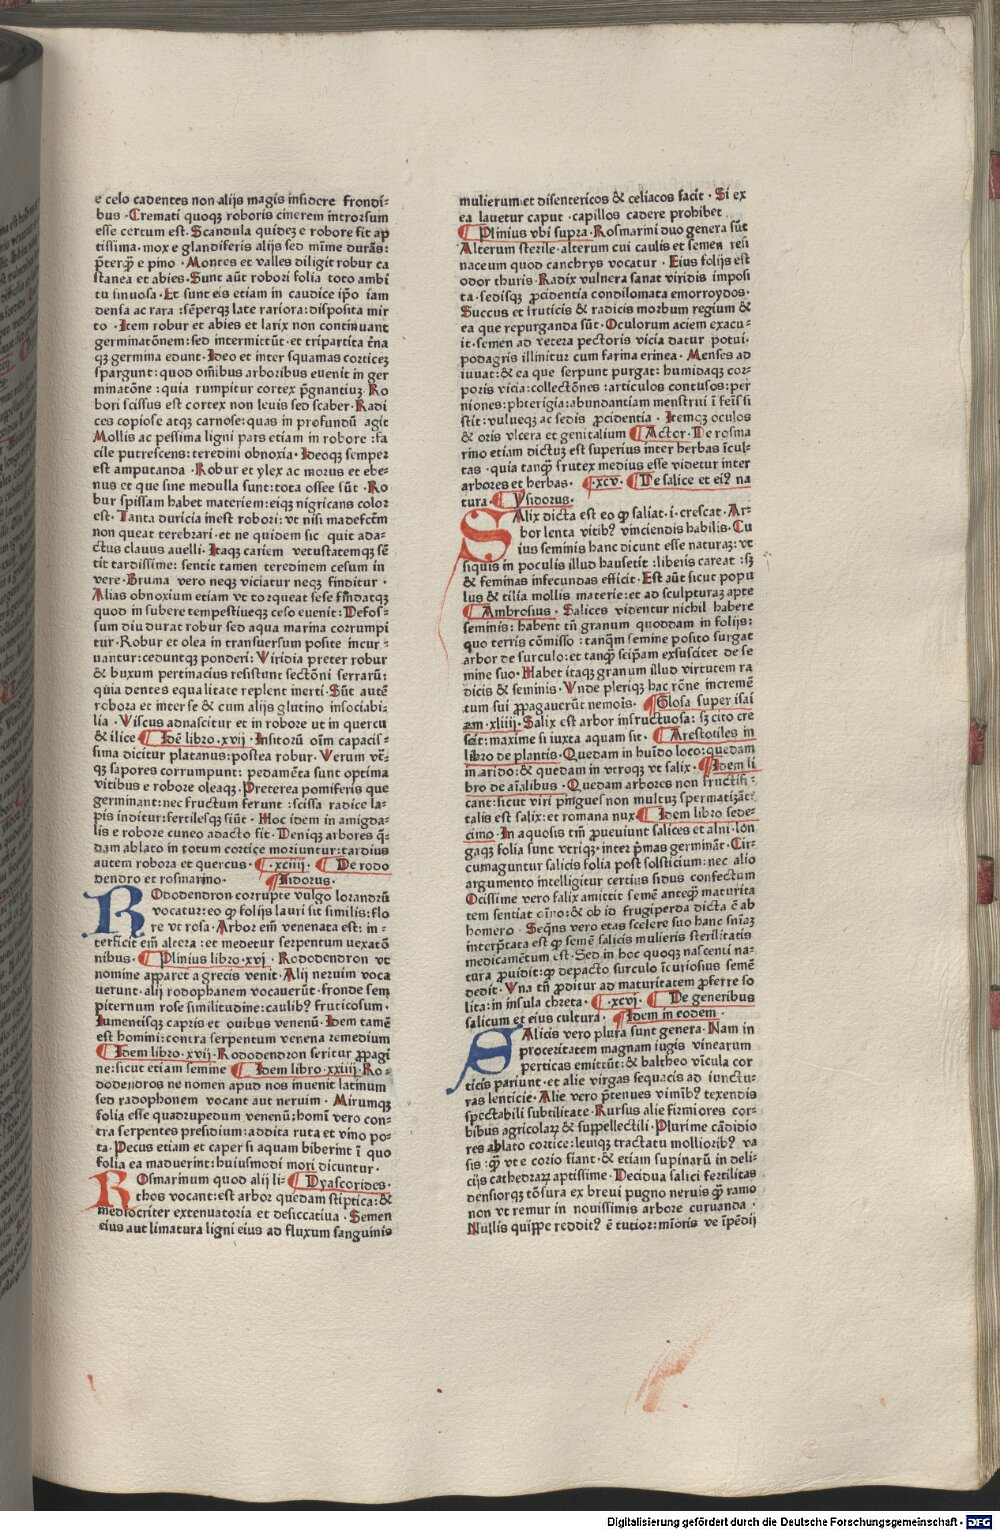 e celo cadentes non alijs magis insidere frondi⸗
bus · Cremati quoqꝫ roboris cinerem introrsum
esse certum est. Scandula quidez e robore fit ap
tissima · mox e glandiferis alijs sed mĩme durãs:
p̃terqꝫ̃ e pino · Montes et valles diligit robur ca
stanea et abies · Sunt aũt robori folia toto ambi
tu sinuosa · Et sunt eis etiam in caudice ip̃o iam
densa ac rara : sẽperqꝫ late rariora : disposita mir
to · Item robur et abies et larix non continuant
germinatõnem : sed intermittũt · et tripartita ẽna
qꝫ germina edunt · Ideo et inter squamas corticez
spargunt : quod om̃ibus arboribus euenit in ger
minatõne : quia rumpitur cortex p̃gnantiuꝫ Ro
bori scissus est cortex non leuis sed scaber · Radi
ces copiose atqꝫ carnose : quas in profundũ agit
Mollis ac pessima ligni pars etiam in robore : fa
cile putrescens : teredini obnoxia · Ideoqꝫ semper
est amputanda · Robur et ylex ac morus et ebe⸗
nus et que sine medulla sunt : tota ossee sũt · Ro
bur spissam habet materiem : eiqꝫ nigricans color
est · Tanta duricia inest robori : vt nisi madefcẽm
non queat terebrari · et ne quidem sic quit ada⸗
ctus clauus auelli · Itaqꝫ cariem vetustatemqꝫ sẽ
tit tardissime : sentit tamen teredinem cesum in
vere · Bruma vero neqꝫ viciatur neqꝫ finditur ·
Alias obnoxium etiam vt torqueat sese fin̄datqꝫ
quod in subere tempestiueqꝫ ceso euenit : Defos⸗
sum diu durat robur sed aqua marina corrumpi
tur · Robur et olea in transuersum posite incur ⸗
uantur : ceduntqꝫ ponderi : Viridia preter robur
& buxum pertinacius resistunt sectõni serrarũ :
quia dentes equalitate replent inerti · Sũt autẽ
robora et inter se & cum alijs glutino insociabi⸗
lia · Viscus adnascitur et in robore ut in quercu
& ilice · ¶ Idẽ libro · xvij · Insitorũ oĩm capacis⸗
sima dicitur platanus : postea robur · Verum vt̃⸗
qꝫ sapores corrumpunt : pedamẽta sunt optima
vitibus e robore oleaqꝫ. Preterea pomiferis que
germinant : nec fructum ferunt : scissa radice la⸗
pis inditur : fertilesqꝫ fiũt · Hoc idem in amigda⸗
lis e robore cuneo adacto fit · Deniqꝫ arbores q̃⸗
dam ablato in totum cortice moriuntur : tardius
autem robora et quercus · ¶ · xciiij · ¶ De rodo
dendro et rosmarino · ¶ Isidorus ·
ROdodendron corrupte vulgo lorandrũ
vocatur : eo qꝙ folijs lauri sit similis : flo
re vt rosa · Arboz em̃ venenata est : in ⸗
terficit em̃ altera : et medetur serpentum uexatõ
nibus · ¶ Plinius libro · xvi · Rododendron vt
nomine apparet a grecis venit · Alij neruim voca
uerunt · alij rodophanem vocauerũt · fronde sem
piternum rose similitudine : caulib⁹ fruticosum ·
Iumentisqꝫ capris et ouibus venenũ · Idem tamẽ
est homini : contra serpentum venena remedium
¶ Idem libro · xvij · Rododendron seritur ꝓpagi
ne : sicut etiam semine ¶ Idem libro · xxiiij · Ro⸗
dodendros ne nomen apud nos inuenit latinum
sed radophonem vocant aut neruim · Mirumqꝫ
folia esse quadrupedum venenũ : homĩ vero con⸗
tra serpentes presidium : addita ruta et vino po⸗
ta · Pecus etiam et caper si aquam biberint ĩ quo
folia ea maduerint : huiusmodi mori dicuntur ·
ROsmarinum quod alij li⸗ ¶ Dyascorides ·
thos vocant : est arbor quedam stiptica : &
mediocriter extenuatoria et desiccatiua · Semen
eius aut limatura ligni eius ad fluxum sanguinis
mulierum et disentericos & celiacos facit · Si ex
ea lauetur caput · capillos cadere prohibet
¶ Plinius vbi supra · Rosmarini duo genera sũt
Alterum sterile · alterum cui caulis et semen resi
naceum quod canchrys vocatur · Eius folijs est
odor thuris · Radix vulnera sanat viridis imposi
ta · sedisqꝫ ꝓcidentia condilomata emorroydos ·
Succus et fruticis & radicis morbum regium &
ea que repurganda sũt · Oculorum aciem exacu⸗
it · semen ad vetera pectoris vicia datur potui ·
podagris illinitur cum farina erinea · Menses ad
iuuat : & ea que serpunt purgat : humidaqꝫ cor⸗
poris vicia : collectõnes : articulos contusos : per
niones : phterigia : abundantiam menstrui ĩ feĩs si
stit : vulueqꝫ ac sedis ꝓcidentia · Itemqꝫ oculos
& oris vlcera et genitalium ¶ Actor · De rosma
rino etiam dictuꝫ est superius inter herbas ĩcul⸗
tas · quia tanqꝫ̃ frutex medius esse videtur inter
arbores et herbas · ¶ · xcv · ¶ De salice et ei⁹ na
tura · ¶ Ysidorus ·
SAlix dicta est eo qꝙ saliat · i · crescat · Ar⸗
bor lenta vitib⁹ vinciendis habilis · Cu
ius seminis hanc dicunt esse naturaꝫ : vt
siquis in poculis illud hauserit : liberis careat : sꝫ
& feminas infecundas efficit · Est aũt sicut popu
lus & tilia mollis materie : et ad sculpturaꝫ apte
¶ Ambrosius · Salices videntur nichil habere
seminis : habent tñ granum quoddam in folijs :
quo terris cõmisso : tanqꝫ̃ semine posito surgat
arbor de surculo : et tanqꝫ̃ seip̃am exsuscitet de se
mine suo · Habet itaqꝫ granum illud virtutem ra
dicis & seminis · Vnde pleriqꝫ hac rõne incremẽ
tum sui ꝓpagauerũt nemois · ¶ Glosa super isai
am · xliiij · Salix est arbor infructuosa : sꝫ cito cre
scit : maxime si iuxta aquam sit · ¶ Arestotiles in
libro de plantis · Quedam in huĩdo loco : quedam
in arido : & quedam in vtroqꝫ vt salix · ¶ Idem li
bro de aĩalibus · Quedam arbores non fructifi⸗
cant : sicut viri pingues non multuꝫ spermatizãt :
talis est salix : et romana nux ¶ Idem libro sede⸗
cimo · In aquosis tm̃ ꝓueniunt salices et alni · lon
gaqꝫ folia sunt vtriqꝫ · inter p̃mas germinãt · Cir⸗
cumaguntur salicis folia post solsticium : nec alio
argumento intelligitur certius sidus confectum
Ocissime vero salix amittit semẽ anteqꝫ̃ maturita
tem sentiat oĩno : & ob id frugiperda dicta ẽ ab
homero · Seq̃ns vero etas scelere suo hanc sñiaꝫ
interp̃tata est qꝙ semẽ salicis mulieris sterilitatis
medicamẽtum est · Sed in hoc quoqꝫ nascenti na⸗
tura ꝓuidit : qꝙ depacto surculo ĩcuriosius semẽ
dedit · Vna tñ ꝓditur ad maturitatem ꝓferre so
lita : in insula chreta · ¶ · xcvj · ¶ De generibus
salicum et eius cultura · ¶ Idem in eodem ·
SAlicis vero plura sunt genera · Nam in
proceritatem magnam iugis vinearum
perticas emittũt : & baltheo vĩcula cor
ticis pariunt · et alie virgas sequacis ad iunctu⸗
ras lenticie · Alie vero p̃tenues vimĩb⁹ texendis
spectabili subtilitate · Rursus alie firmiores cor⸗
bibus agricolarꝫ & suppellectili · Plurime cãdidio
res ablato cortice : leuiqꝫ tractatu mollioribꝰ va
sis : qꝫ̃ vt e corio fiant · & etiam supinarũ in deli⸗
cijs cathedrarꝫ aptissime · Decidua salici fertilitas
densiorqꝫ tõsura ex breui pugno neruis qꝫ̃ ramo
non vt remur in nouissimis arbore curuanda ·
Nullis quippe reddit⁹ ẽ tutior : mĩoris ve ĩpẽdij
Digitalisierung gefördert durch die Deutsche Forschungsgemeinschaft - DFG